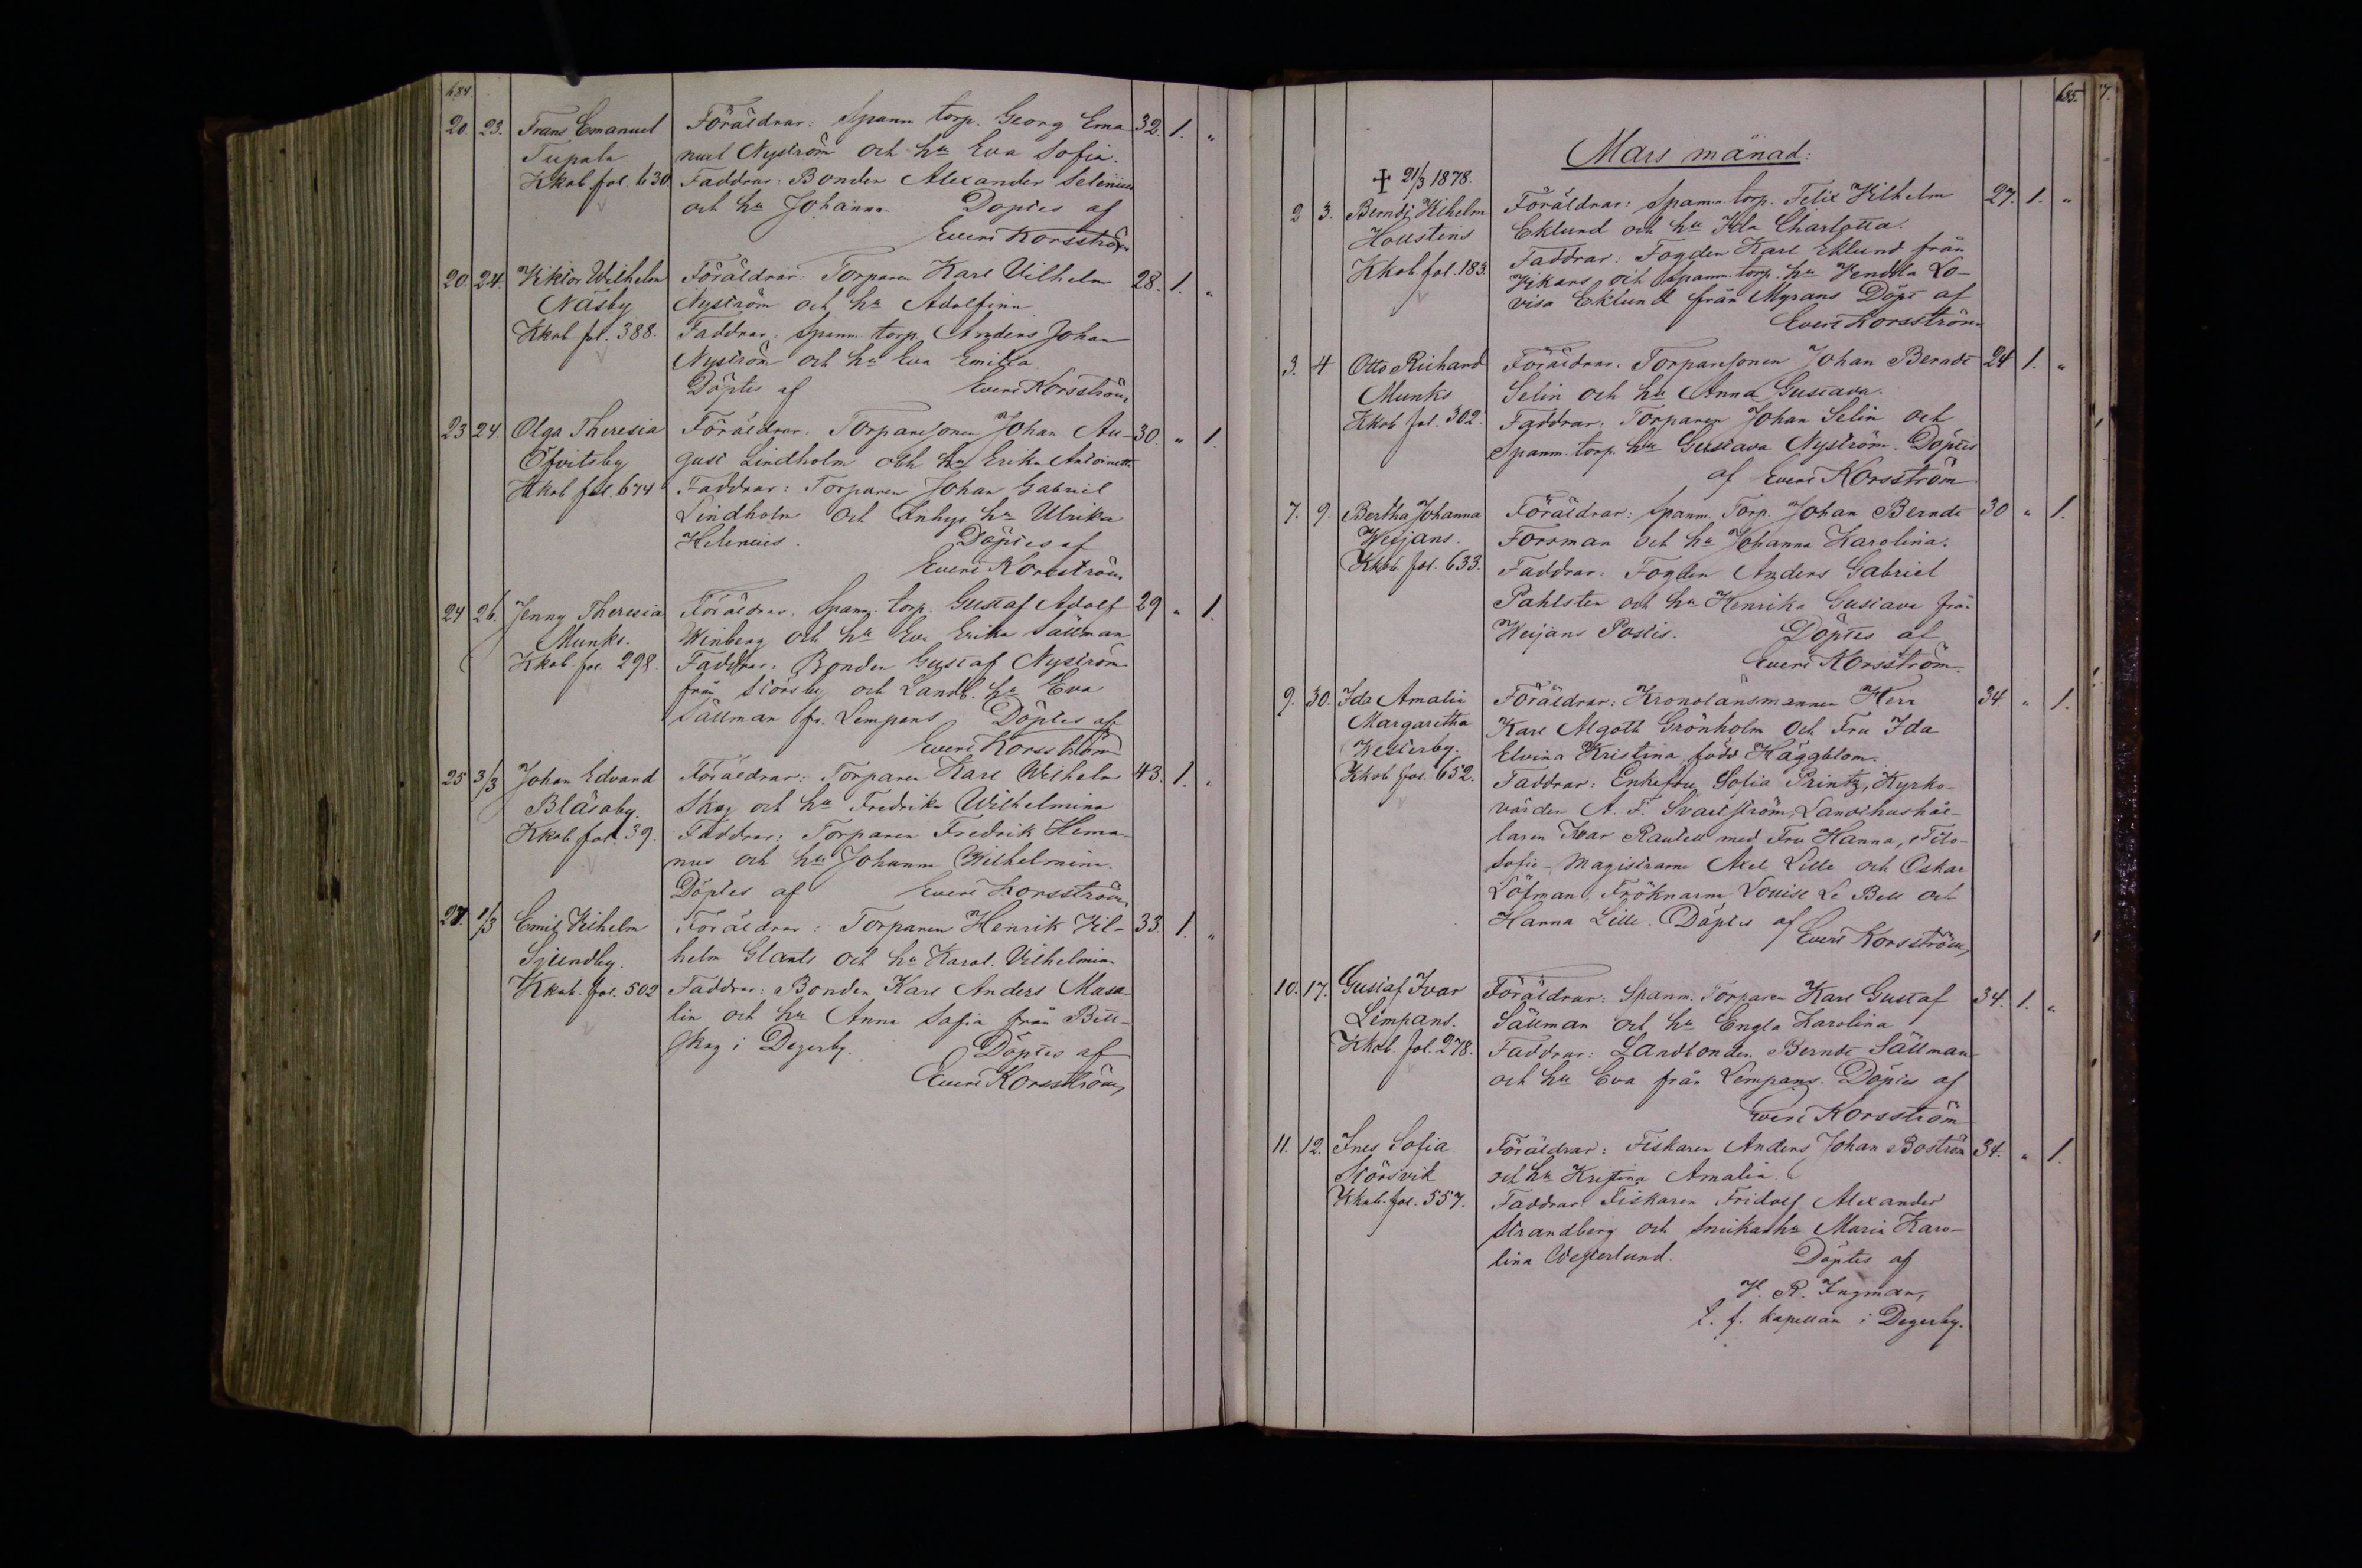 684.
20. 23. Frans Emanuel Föräldrar: Spanm torp. Georg Ema- 32. 1. "
Tupala nuel Nyström och hu Eva Sofia.
Kkob fol. 630. Faddrar: Bonden Alexander Selenius
och hu Johanna Döptes af
Evert Korsström
20. 24. Viktor Wilhelm Föräldrar: Torparen Karl Vilhelm 28. 1. "
Näsby Nyström och hu Adolfina
Kkob fol. 388. Faddrar: Spanm. torp. Anders Johan
Nyström och hu Eva Emilia.
Döptes af Evert Korsström
23 24. Olga Theresia Föräldrar: Torparesonen Johan Au- 30. " 1.
Öfvitsby gust Lindholm och hu Erika Antoinett
Kkob fol. 674 Faddrar: Torparen Johan Gabriel
Lindholm och Inhys hu Ulrika
Helenius. Döptes af
Evert Korsström
24 26. Jenny Theresia Föräldrar: Spanm. torp. Gustaf Adolf 29 " 1.
Munks. Winberg och hu Eva Erika Sällman
Kkob fol. 298. Faddrar: Bonden Gustaf Nyström
från Störsby och Landb. hu Eva
Sällman fr. Lempans Döptes af
Evert Korsström
25 3/3 Johan Edvard Föräldrar: Torparen Karl Wilhelm 43. 1. "
Bläsaby. Skog och hu Fredrika Wilhelmina
Kkob fol. 39. Faddrar: Torparen Fredrik Hema-
nus och hu Johanna Wilhelmina.
Döptes af Evert Korsström
27. 1/3 Emil Vilhelm Föräldrar: Torparen Henrik Vil- 33. 1. "
Sjundby. helm Glants och hu Karol. Vilhelmina
Kkob. fol. 502 Faddrar: Bonden Karl Anders Masa-
lin och hu Anna Sofia från Bill-
skog i Degerby. Döptes af
Evert Korsström
685. 7.
Mars månad:
† 21/3 1878.
2 3. Berndt Vilhelm Föräldrar: Spanm. torp. Felix Vilhelm 27. 1. "
Houstens Eklund och hu Ida Charlotta.
Kkob fol. 183. Faddrar: Fogden Karl Eklund från
Vikars och Spanm. torp. hu Vendla Lo-
visa Eklund från Myrans Döpt af
Evert Korsström
3. 4 Otto Richard Föräldrar: Torparesonen Johan Berndt 24 1. "
Munks Selin och hu Anna Gustava.
Kkob fol. 302. Faddrar: Torparen Johan Selin och
Spanm. torp. hu Gustava Nyström. Döptes
af Evert Korsström
7. 9. Bertha Johanna Föräldrar: Spanm. Torp. Johan Berndt 30 " 1.
Weijans. Forsman och hu Johanna Karolina.
Kkob. fol. 633. Faddrar: Fogden Anders Gabriel
Pahlsten och hu Henrika Gustava från
Weijans Postis. Döptes af
Evert Korsström
9. 30. Ida Amalia Föräldrar: Kronolänsmannen Herr 34 " 1.
Margaretha Karl Algoth Grönholm och Fru Ida
Westerby. Elvina Kristina född Häggblom.
Kkob fol. 652. Faddrar: Enkefru Sofia Printz, Kyrko-
värden A. F. Svartström, Landthushål-
laren Ivar Rautell med Fru Hanna, Filo-
sofie-Magistrarne Axel Lille och Oskar
Löfman, Fröknarna Louise Le Bell och
Hanna Lille. Döptes af Evert Korsström
10. 17. Gustaf Ivar Föräldrar: Spanm. Torparen Karl Gustaf 34. 1. "
Lempans. Sällman och hu Engla Karolina
Kkob fol. 278. Faddrar: Landbonden Berndt Sällman
och hu Eva från Lempans. Döptes af
Evert Korsström
11. 12. Ines Sofia Föräldrar: Fiskaren Anders Johan Boström 34. " 1.
Störsvik och hu Kristina Amalia.
Kkob. fol. 557. Faddrar Fiskaren Fridolf Alexander
Strandberg och Snickarhu Maria Karo-
lina Westerlund. Döptes af
K. R. Ingman,
t. f. kapellan i Degerby.